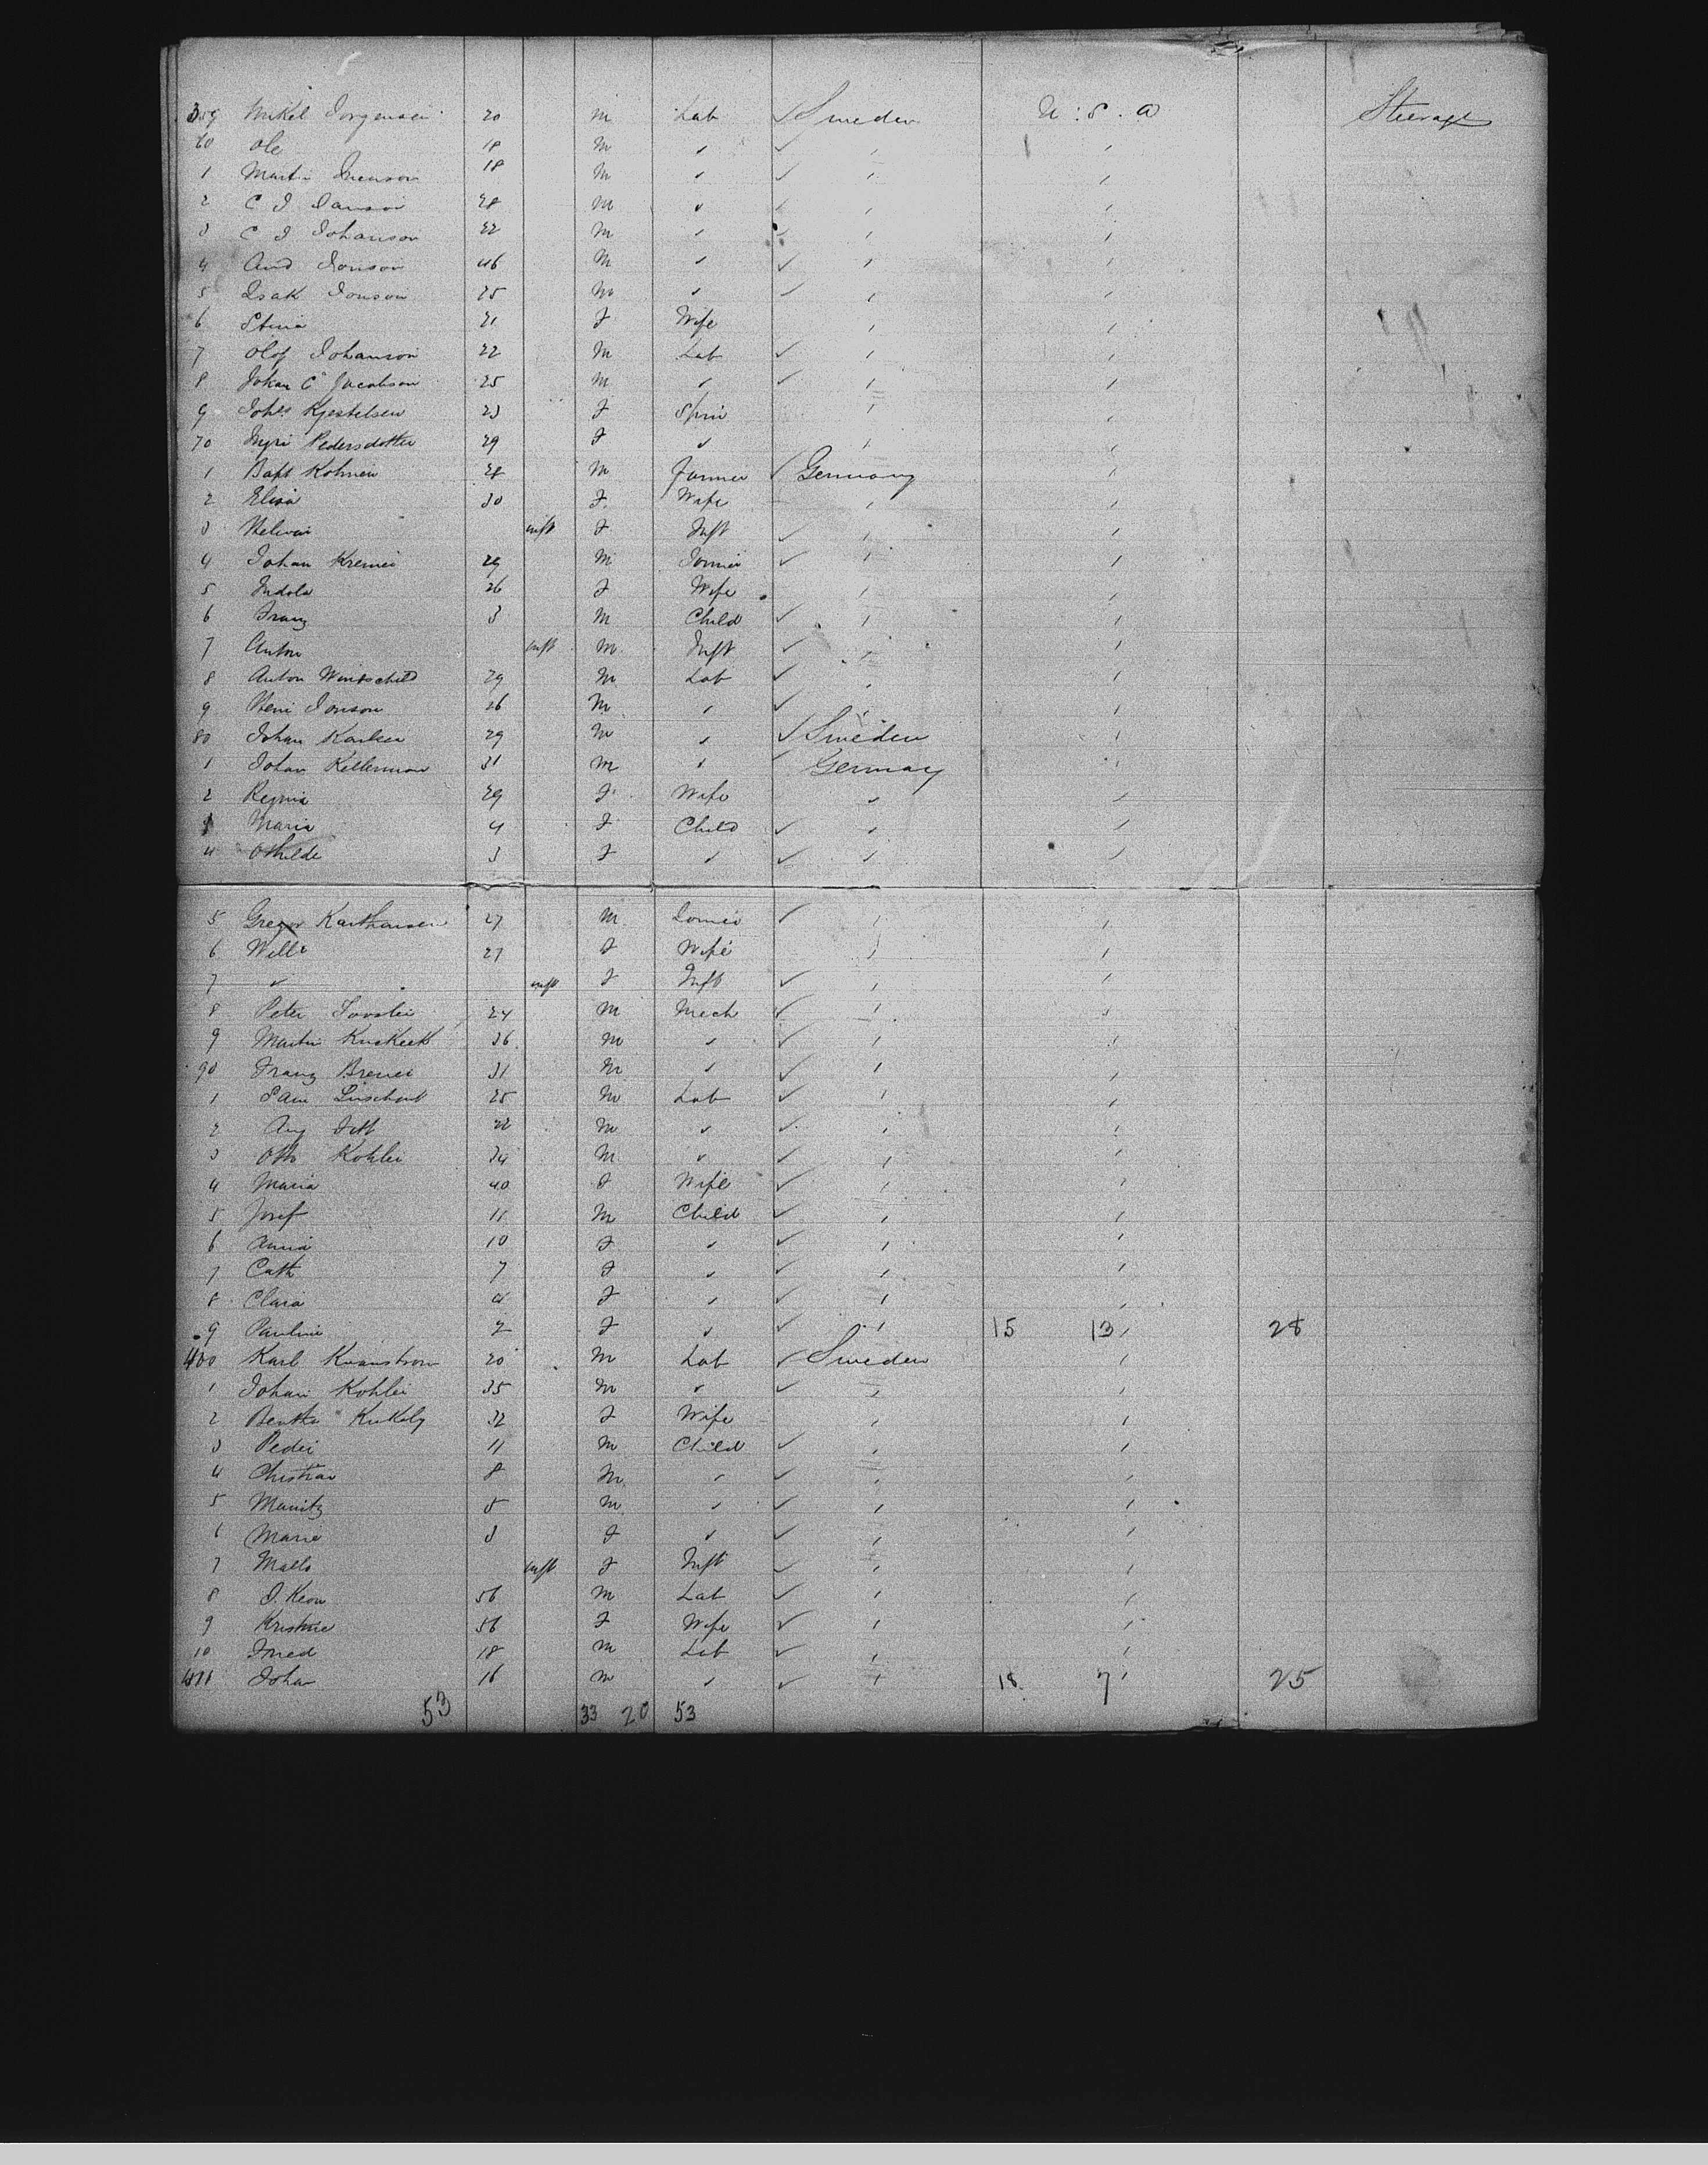 359 Mikel Jorgensen 20 M Lab ✓ Sweden U.S.A Steerage
60 Ole 18 M " ✓ " "
1 Martin 18 M " ✓ " "
2 C J 28 M " ✓ " "
3 C J Johanson 22 M " ✓ " "
4 And Jonson 46 M " ✓ " "
5 Isak Jonson 25 M " ✓ " "
6 Stina 21 F Wife " "
7 Olof Johanson 22 M Lab ✓ " "
8 Johan C Jacobson 25 M " ✓ " "
9 Johs Kjestelsen 23 F Spin " "
70 Ingri Pedersdotter 29 F " " "
1 Bapt Kohnen 28 M Farmer ✓ Germany "
2 Elisa 30 F Wife " "
3 inft F Inft ✓ " "
4 Johan 29 M ✓ " "
5 26 F Wife " "
6 Franz 3 M Child ✓ " "
7 Anton inft M Inft ✓ " "
8 Anton 29 M Lab ✓ " "
9 Jonson 26 M " ✓ " "
80 Johan Karlsen 29 M " ✓ Sweden "
1 Johan Kellerman 31 M " ✓ Germany "
2 Regina 29 F Wife " "
3 Maria 4 F Child ✓ " "
4 Othilde 3 F " ✓ " "
5 Gregor Karthausen 27 M ✓ " "
6 27 F Wife " "
7 " inft F Inft ✓ " "
8 Peter 24 M Mech ✓ " "
9 Martin 36 M " ✓ " "
90 Franz 31 M " ✓ " "
1 Sam 25 M Lab ✓ " "
2 Aug 22 M " ✓ " "
3 Otto Kohler 34 M " ✓ " "
4 Maria 40 F Wife ✓ " "
5 Josef 11 M Child ✓ " "
6 Anna 10 F " ✓ " "
7 Cath 7 F " ✓ " "
8 Clara 4 F " ✓ " "
9 Pauline 2 F " ✓ " 15 13 " 28
400 Karl Kvanstrom 20 M Lab ✓ Sweden "
1 Johan Kohler 35 M " ✓ " "
2 Bertha 32 F Wife " "
3 Peder 11 M Child ✓ " "
4 Christian 8 M " ✓ " "
5 Mauritz 5 M " ✓ " "
6 Marie 3 F " ✓ " "
7 inft F Inft ✓ " "
8 J. Keon 56 M Lab ✓ " "
9 Kristine 56 F Wife ✓ " "
10 Fried 18 M Lab ✓ " "
411 Johan 16 M " ✓ " 18 7 " 25
53 33 20 53